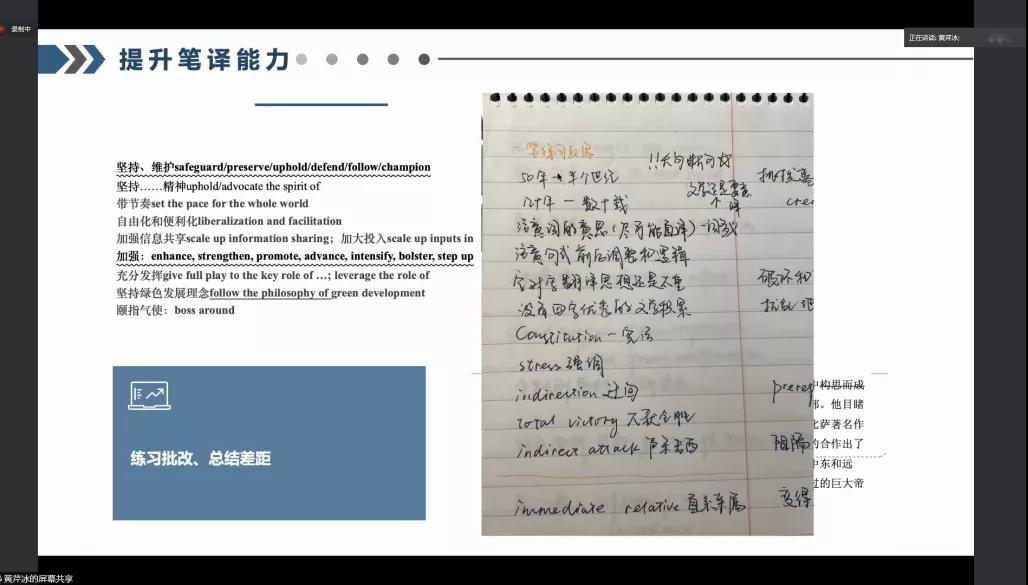 录制中
正在讲话: 黄芹冰;
提升笔译能力
坚持、维护safeguard/preserve/uphold/defend/follow/champion
坚持……精神uphold/advocate the spirit of
带节奏set the pace for the whole world
自由化和便利化liberalization and facilitation
加强信息共享scale up information sharing；加大投入scale up inputs in
加强：enhance, strengthen, promote, advance, intensify, bolster, step up
充分发挥give full play to the key role of …; leverage the role of
坚持绿色发展理念follow the philosophy of green development
颐指气使：boss around
练习批改、总结差距
!!大句断句好
50年→半个世纪
几十年 — 数十载
注意词的意思(尽可能直译)
注意句式前后调整和逻辑
没有四字优秀的文学积累
Constitution — 宪法
stress 强调
indirection 迂回
total victory 大获全胜
indirect attack 声东击西
immediate relative 直系亲属
破坏和
扰乱
prereq
阻隔
变得
中构思而成
部。他目睹
比萨著名作
的合作出了
中东和远
过的巨大帝
黄芹冰的屏幕共享